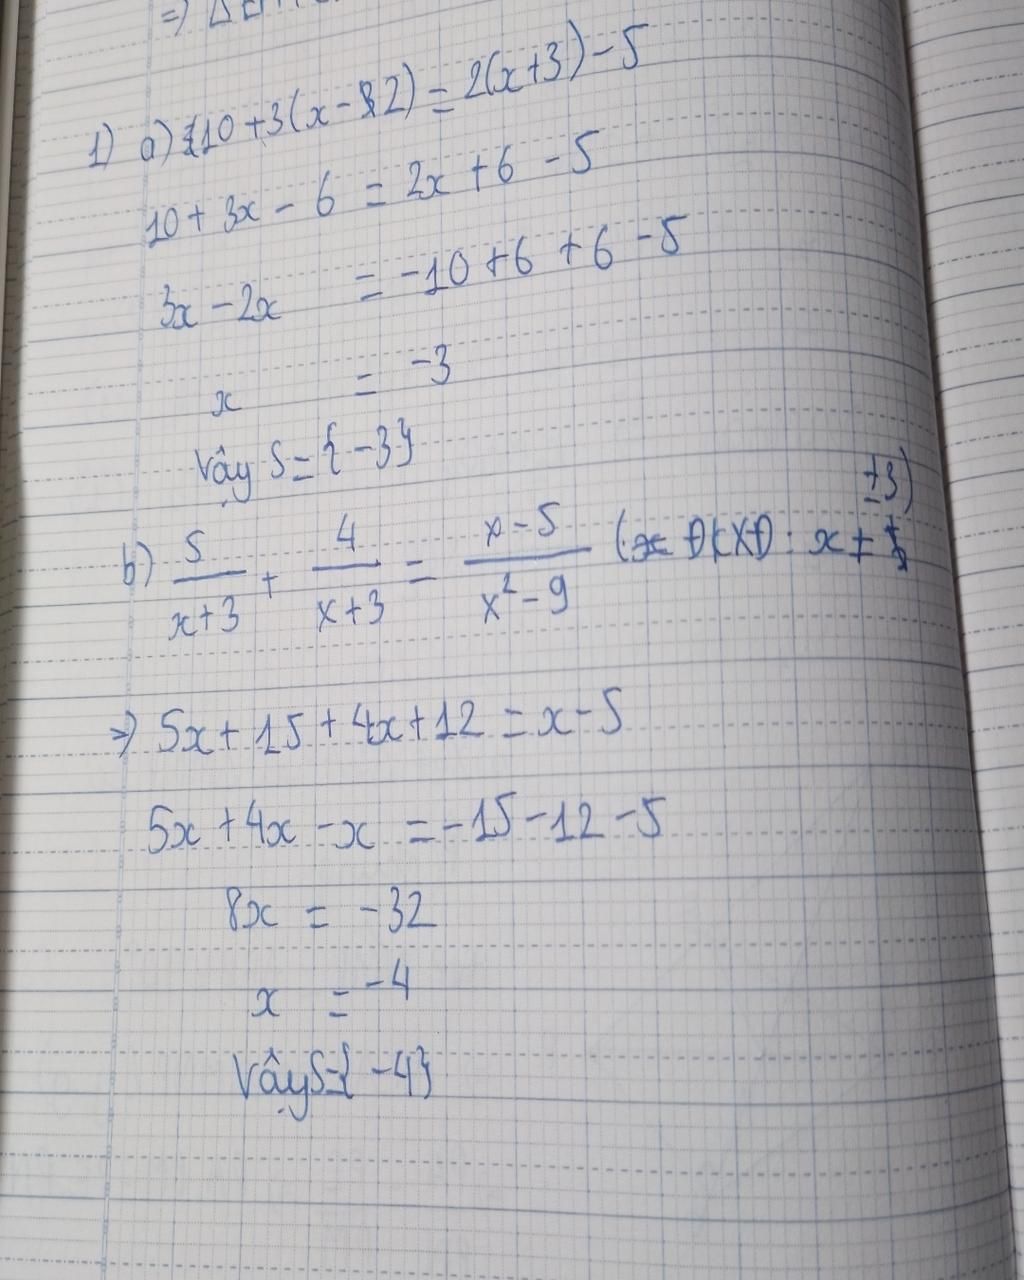 1) a) 10 + 3(x - 2) = 2(x + 3) - 5
10 + 3x - 6 = 2x + 6 - 5
3x - 2x = -10 + 6 + 6 - 5
x = -3
Vậy S = { -3}
b) 5/(x+3) + 4/(x+3) = (x-5)/(x²-9) (ĐKXĐ: x ≠ ±3)
=> 5x + 15 + 4x + 12 = x - 5
5x + 4x - x = -15 - 12 - 5
8x = -32
x = -4
Vậy S = { -4}